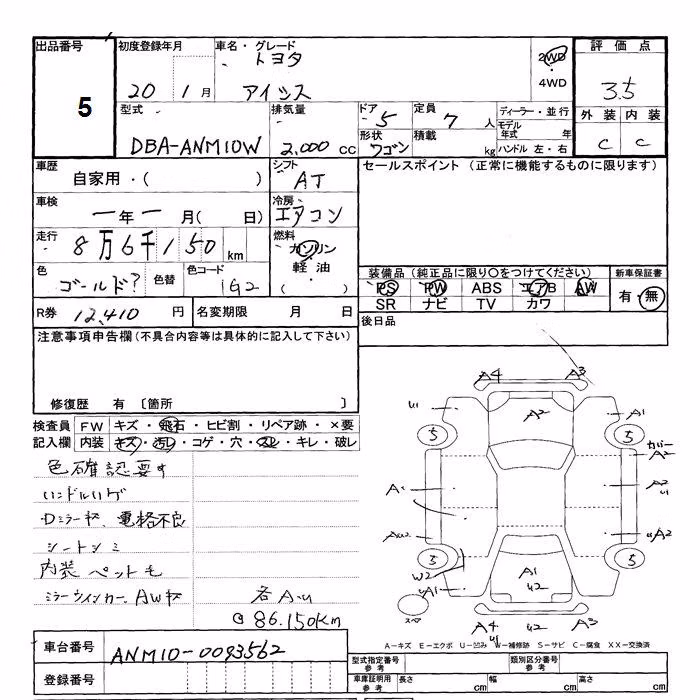 出品番号
5
初度登録年月
20 1月
車名・グレード
トヨタ
アイシス
2WD
・
4WD
評価点
3.5
外装 内装
C C
型式
DBA-ANM10W
排気量
2,000 cc
ドア
5
定員
7 人
形状
ワゴン
積載
kg
ディーラー・並行
モデル年式 年
ハンドル 左・右
車歴
自家用・( )
シフト
AT
セールスポイント (正常に機能するものに限ります)
車検
ー年ー月( 日)
冷房
エアコン
走行
8万6千150km
燃料
ガソリン
・
軽油
・
( )
色
ゴールド?
色替
色コード
1G2
装備品(純正品に限り○をつけてください)
PS PW ABS エアB AW
SR ナビ TV カワ
新車保証書
有・無
R券 12,410 円
名変期限 月 日
後日品
注意事項申告欄(不具合内容等は具体的に記入して下さい)
修復歴 有 〔箇所 〕
検査員
記入欄
FW キズ・飛石・ヒビ割・リペア跡・×要
内装 キズ・汚レ・コゲ・穴・スレ・キレ・破レ
色確認要す
ハンドルハゲ
Dミラーキズ、電格不良
シートシミ
内装ペットモ
ミラーウインカー、AWキズ
各AU
@86.150Km
A4 A3
U1 A2 A1
5 5
カバー
A2
A1 A2
U1
AU2 UA2
5 5
W2 A1
U2
UA1 A1
スペア
A4 A3
U1
A-キズ E-エクボ U-凹み W-補修跡 S-サビ C-腐食 XX-交換済
車台番号
ANM10-0093562
登録番号
型式指定番号
参考
類別区分番号
参考
車庫証明用
参考
長さ cm 幅 cm 高さ cm